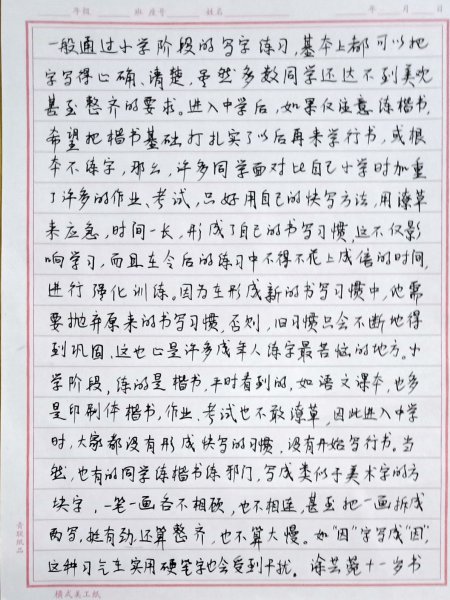 年级 班 座号 姓名 年 月 日
一般通过小学阶段的写字练习,基本上都可以把
字写得正确、清楚,虽然多数同学还达不到美观
甚至整齐的要求。进入中学后,如果仅注意练楷书,
希望把楷书基础打扎实了以后再来学行书,或根
本不练字,那么,许多同学面对比自己小学时加重
了许多的作业、考试,只好用自己的快写方法,用潦草
来应急,时间一长,形成了自己的书写习惯,这不仅影
响学习,而且在今后的练习中不得不花上成倍的时间,
进行强化训练。因为在形成新的书写习惯中,他需
要抛弃原来的书写习惯,否则,旧习惯只会不断地得
到巩固,这也正是许多成年人练字最苦恼的地方。小
学阶段,练的是楷书,平时看到的,如语文课本,也多
是印刷体楷书,作业、考试也不敢潦草,因此进入中学
时,大家都没有形成快写的习惯,没有开始写行书。当
然,也有的同学练楷书练邪门,写成类似于美术字的方
块字,一笔一画各不相顾,也不相连,甚至把一画拆成
两写,挺有劲,还算整齐,也不算太慢。如“因”字写成“因”,
这种习气在实用硬笔字也会受到干扰。涂芸菀十一岁书
青联纸品
横式美工纸